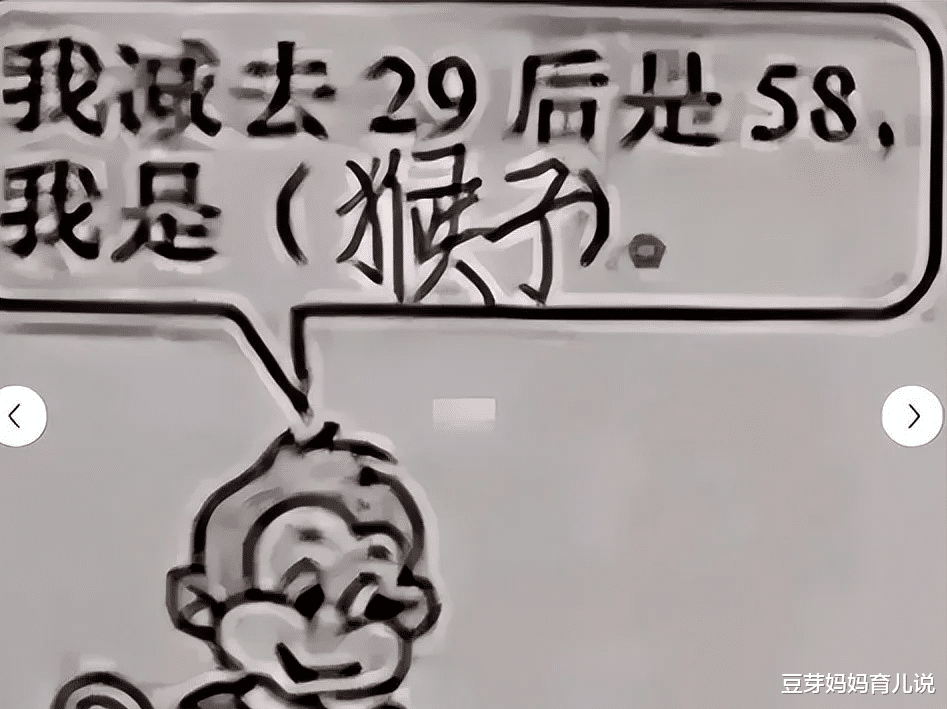 我减去29后是58,
我是(猴子)。
豆芽妈妈育儿说